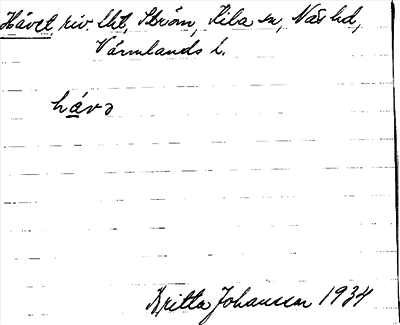 Hävet, riv. lht, Ström, Kila sn, Näs hd,
Värmlands l.
hävə
Britta Johansson 1934